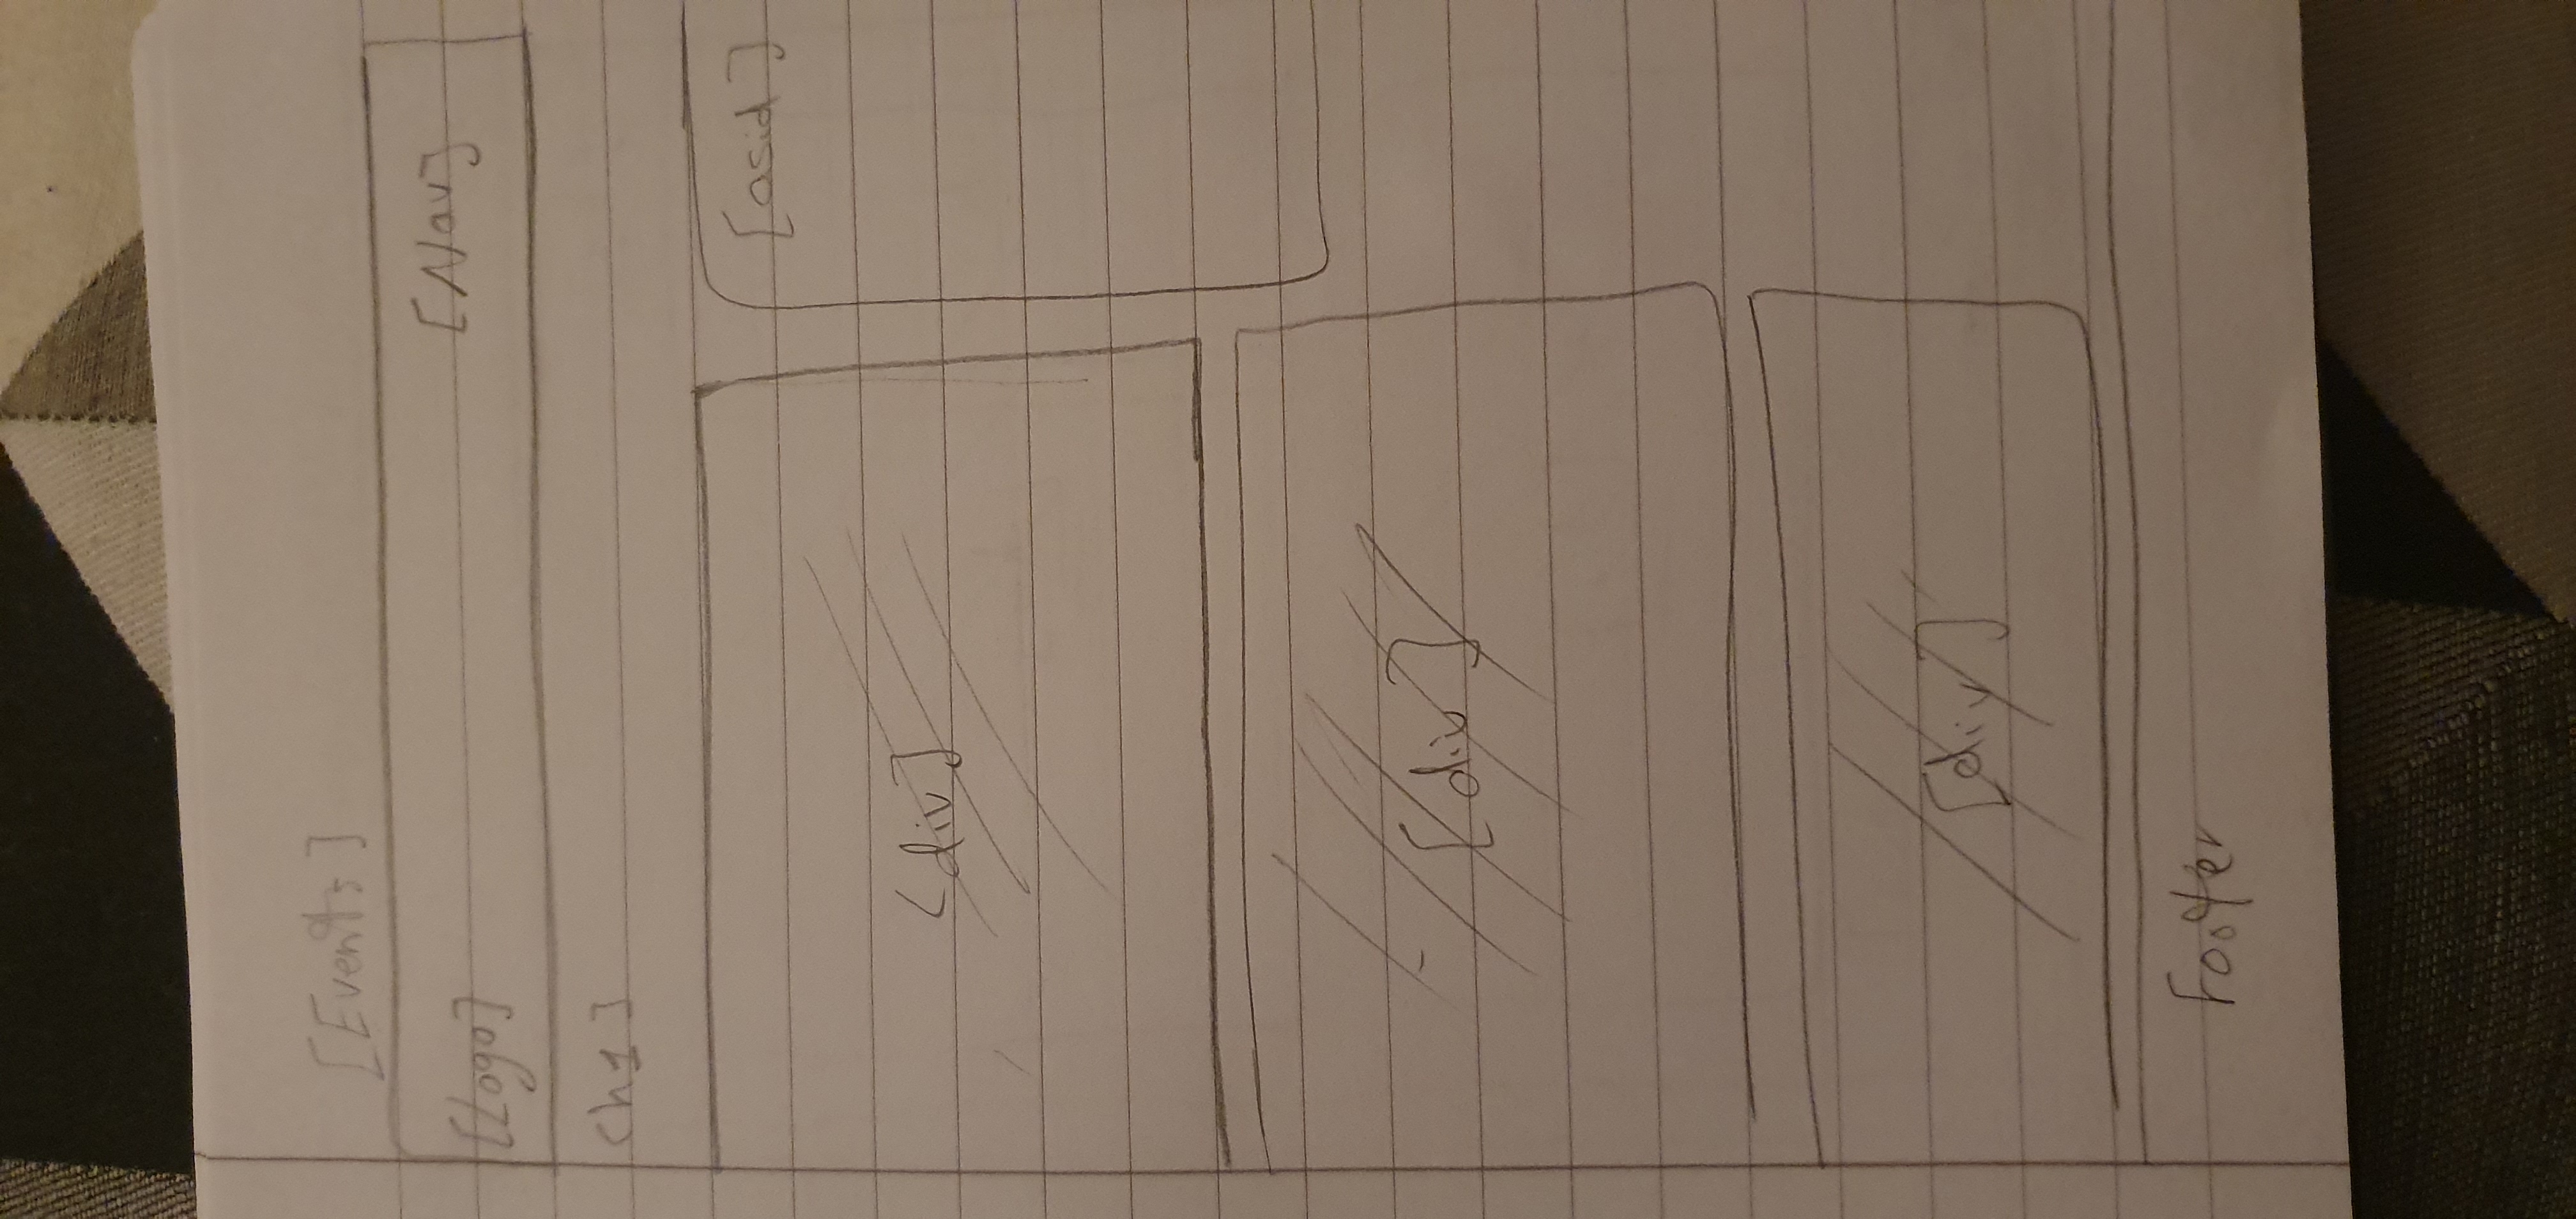 [Events]
[Logo] [Nav]
<h1]
<div] [asid]
[div]
[div]
Footer